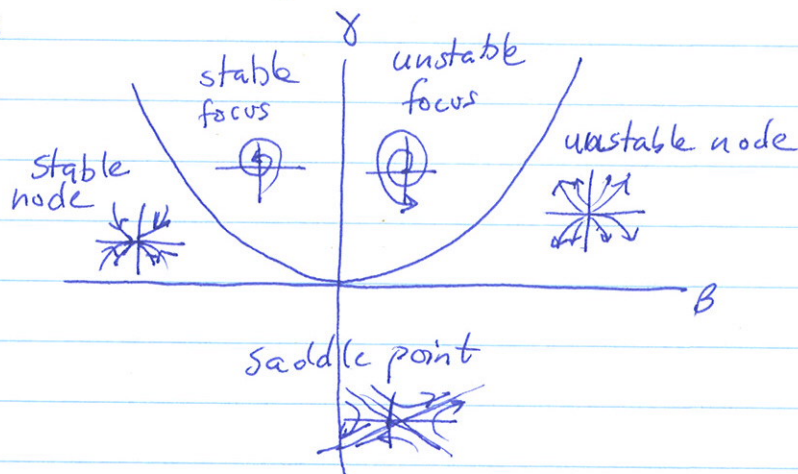 γ
stable
focus
unstable
focus
unstable node
stable
node
β
saddle point